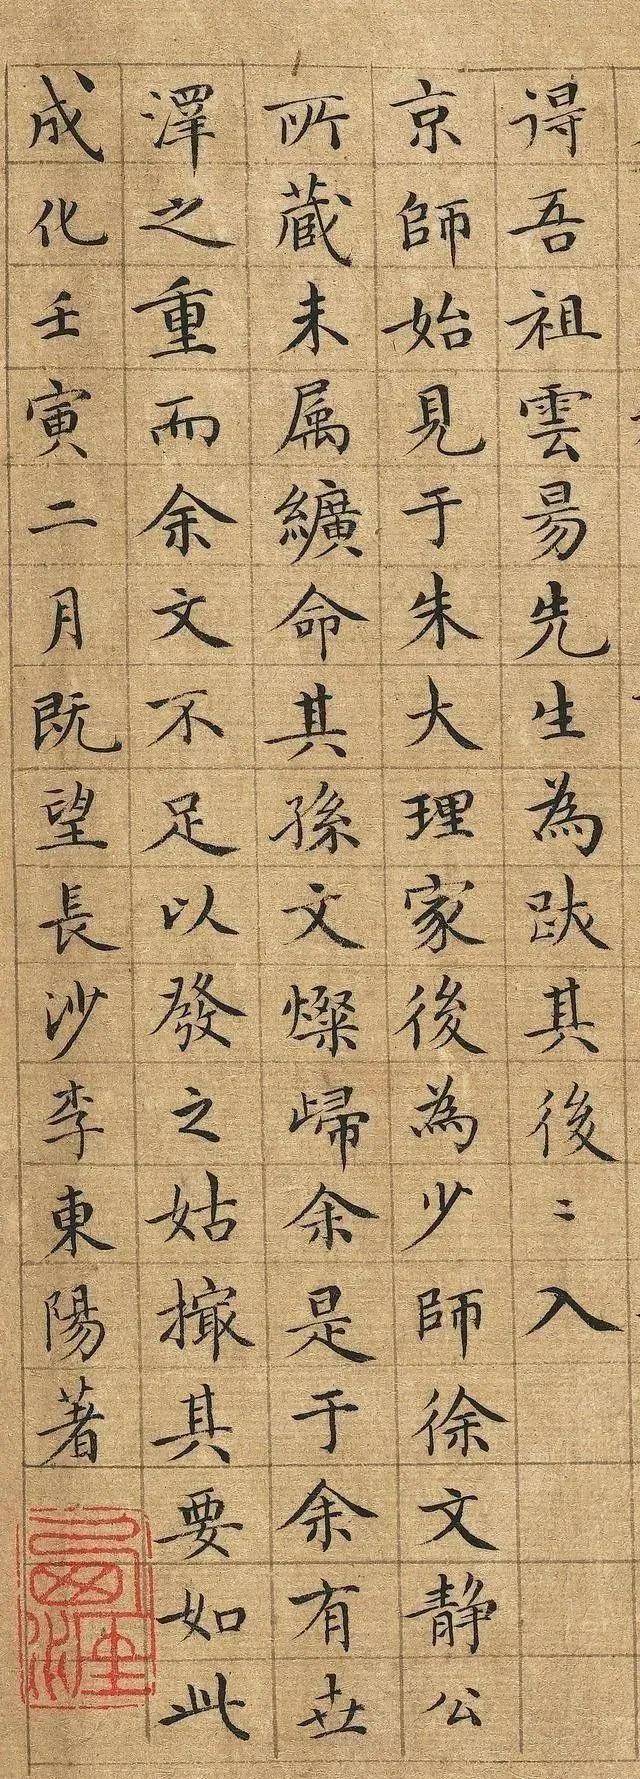 得吾祖雲昜先生為跋其後〻入
京師始見于朱大理家後為少師徐文靜公
所蔵未属纊命其孫文燦歸余是于余有丗
澤之重而余文不足以發之姑撮其要如此
成化壬寅二月既望長沙李東陽著
西涯